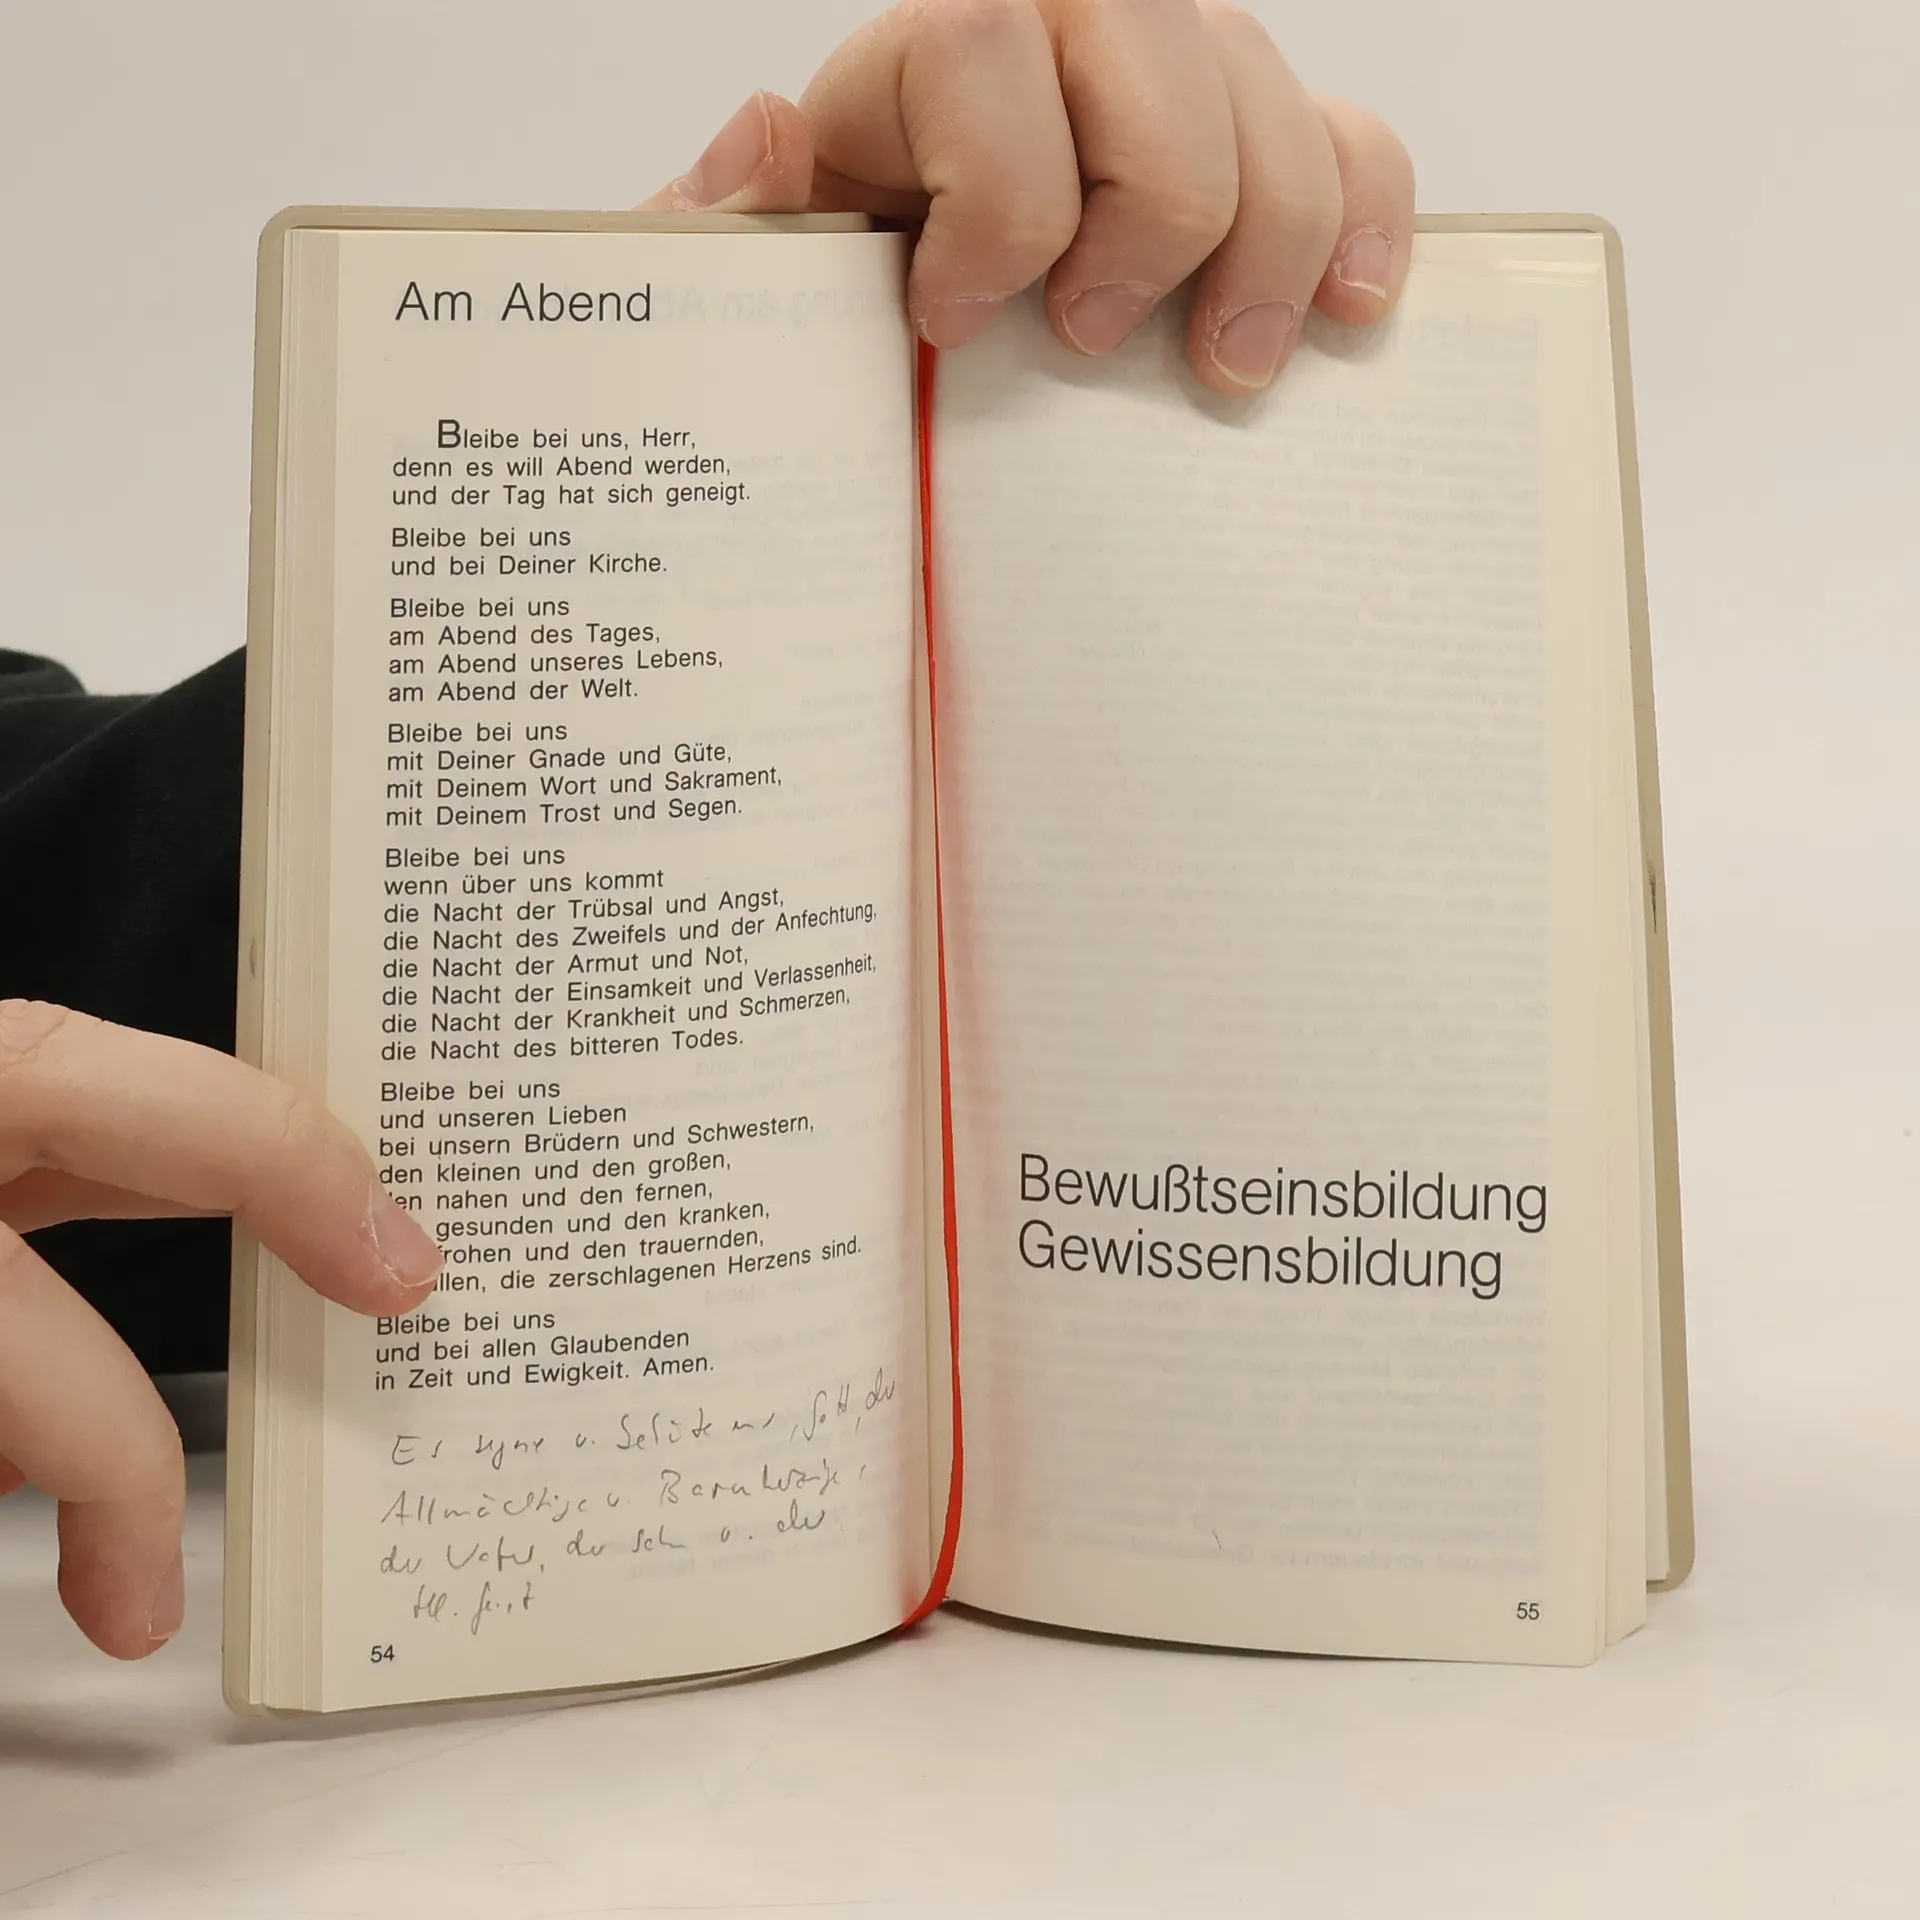 Am Abend
Bleibe bei uns, Herr,
denn es will Abend werden,
und der Tag hat sich geneigt.
Bleibe bei uns
und bei Deiner Kirche.
Bleibe bei uns
am Abend des Tages,
am Abend unseres Lebens,
am Abend der Welt.
Bleibe bei uns
mit Deiner Gnade und Güte,
mit Deinem Wort und Sakrament,
mit Deinem Trost und Segen.
Bleibe bei uns
wenn über uns kommt
die Nacht der Trübsal und Angst,
die Nacht des Zweifels und der Anfechtung,
die Nacht der Armut und Not,
die Nacht der Einsamkeit und Verlassenheit,
die Nacht der Krankheit und Schmerzen,
die Nacht des bitteren Todes.
Bleibe bei uns
und unseren Lieben
bei unsern Brüdern und Schwestern,
den kleinen und den großen,
nahen und den fernen,
gesunden und den kranken,
frohen und den trauernden,
die zerschlagenen Herzens sind.
Bleibe bei uns
und bei allen Glaubenden
in Zeit und Ewigkeit. Amen.
Es segne u. uns, Gott, der
Allmächtige u. Barmherzige,
der Vater, der Sohn u. der
Hl. Geist
54
Bewußtseinsbildung
Gewissensbildung
55